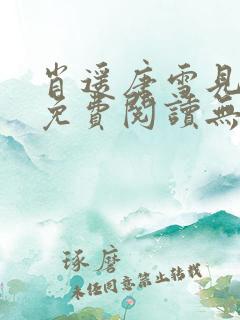 肖遥唐雪見
免費閱讀無
琢磨
未经同意禁止转载